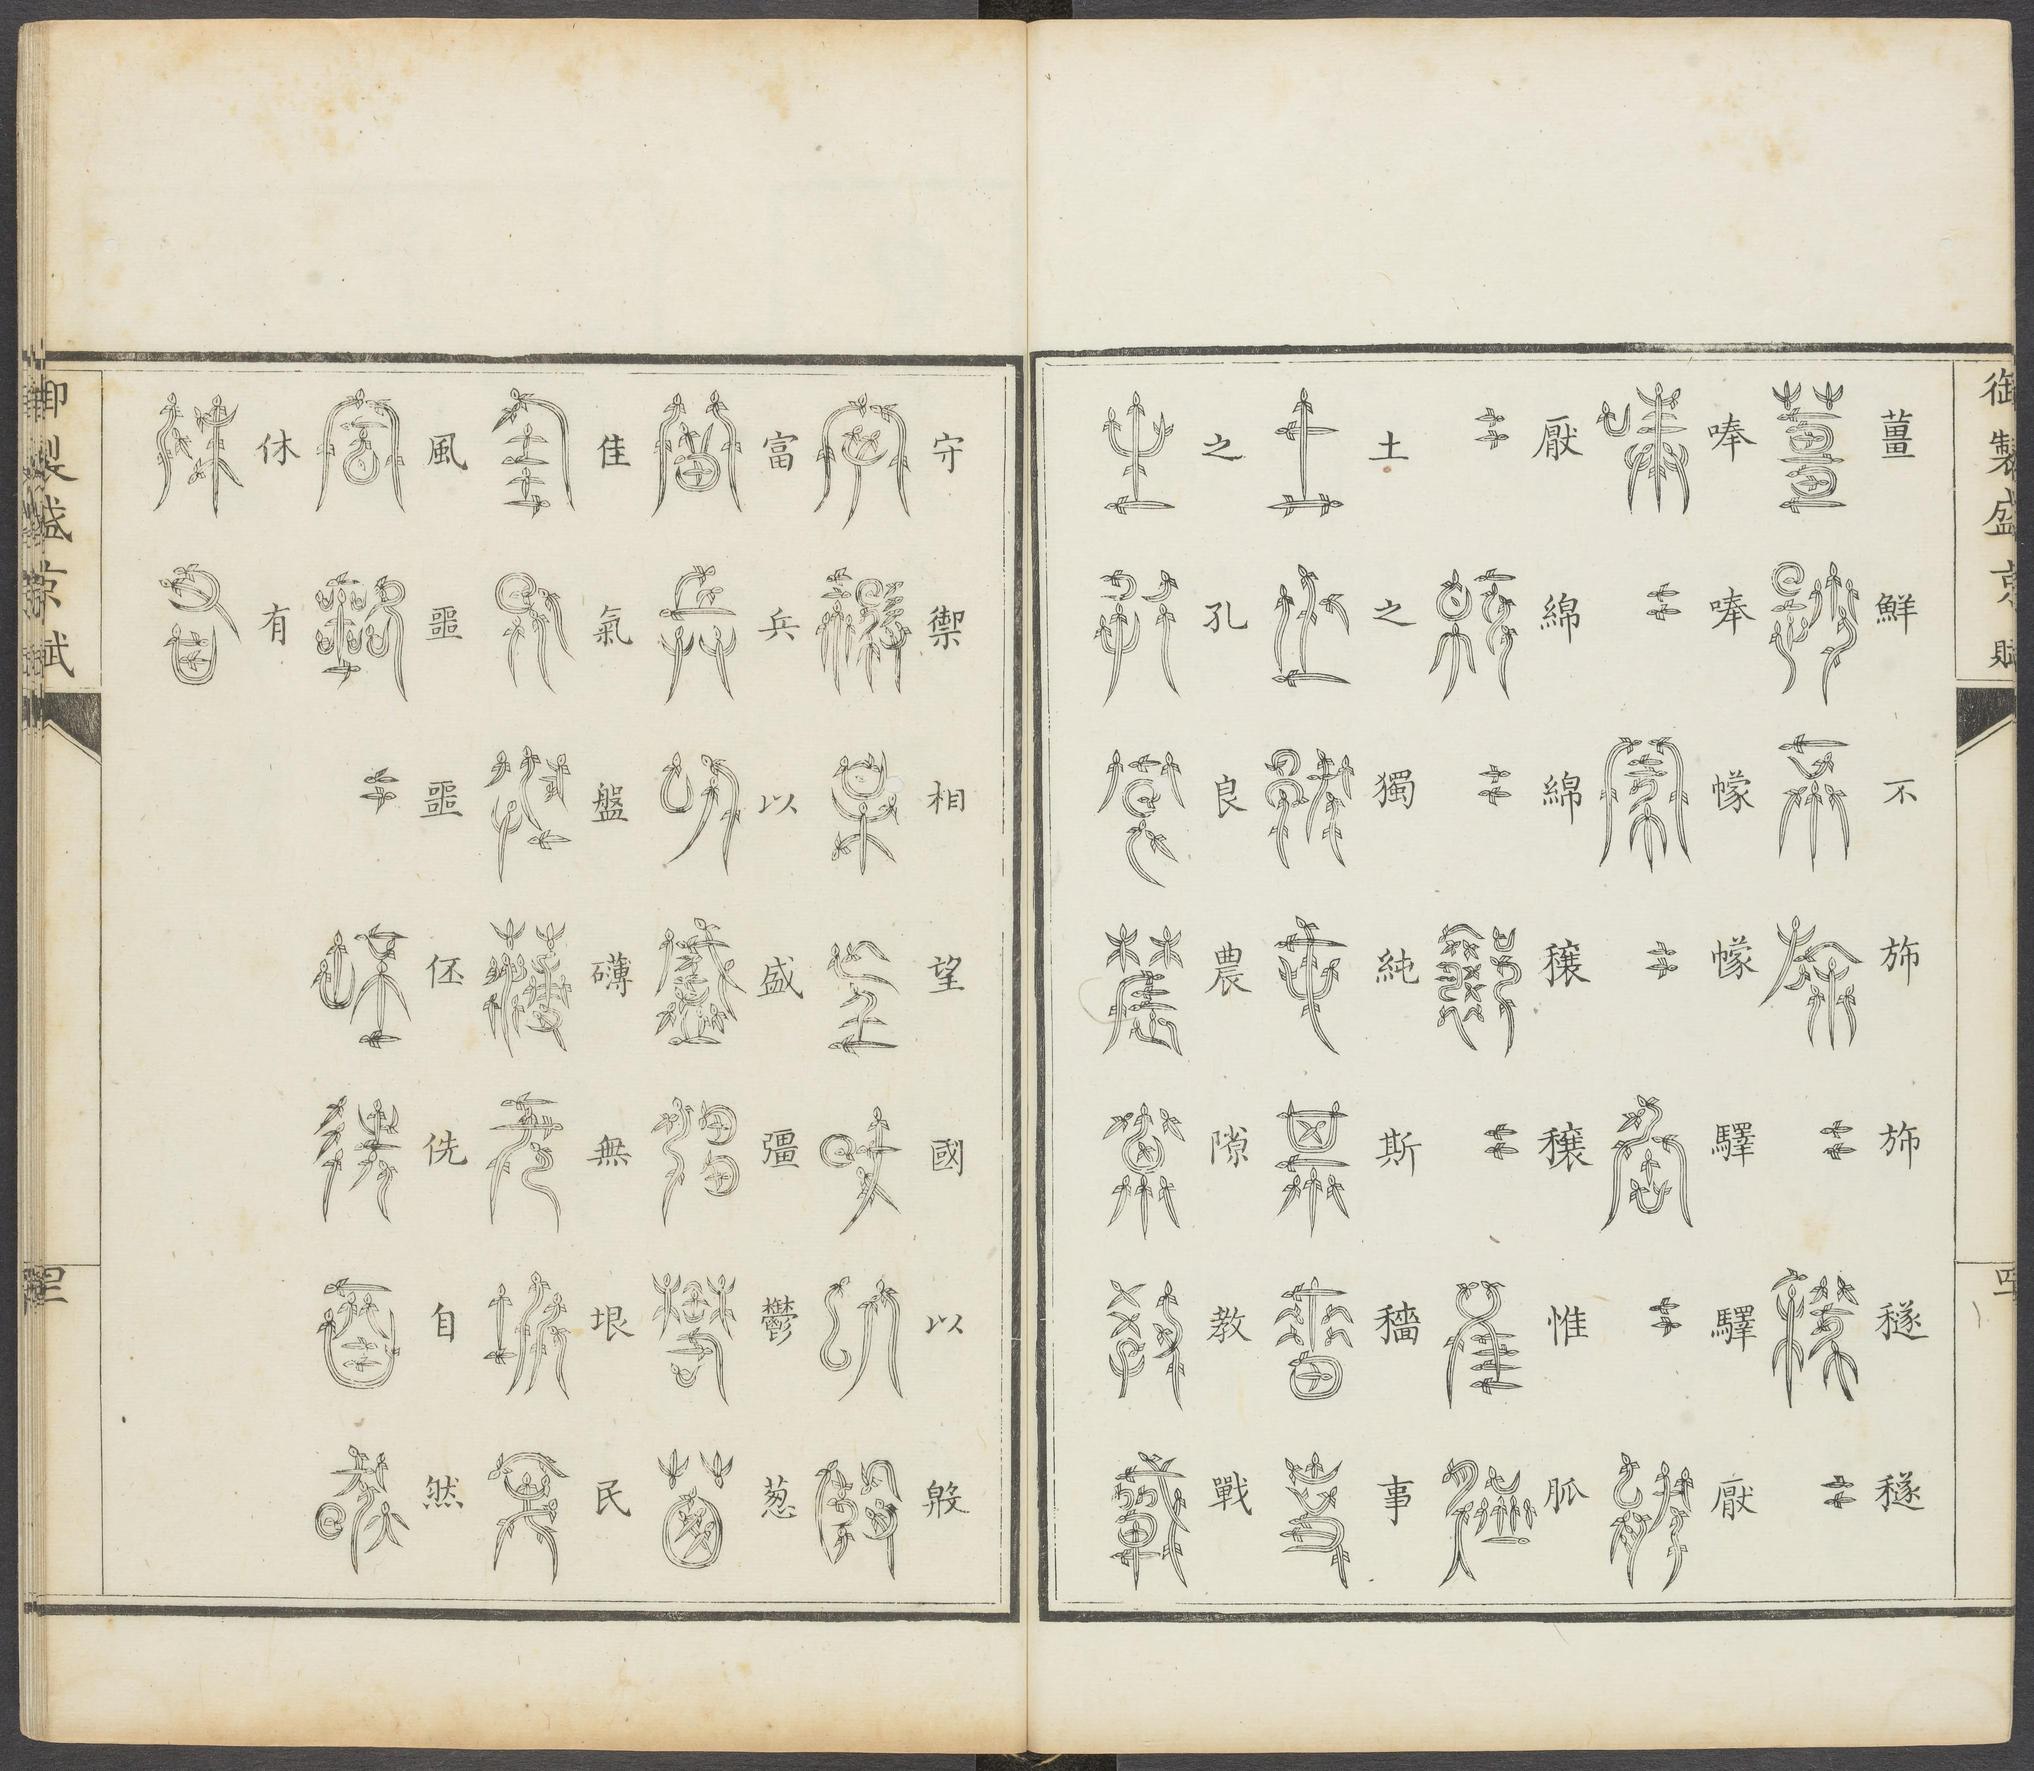 御製盛京賦
薑鮮不斾斾穟穟
唪唪幪幪驛驛厭
厭綿綿穰穰惟胍
土之獨純斯穡事
之孔良農隙教戰
守禦相望國以殷
富兵以盛彊鬱葱
佳氣盤礴無垠民
風噩噩伾侁自然
休有
御製盛京賦